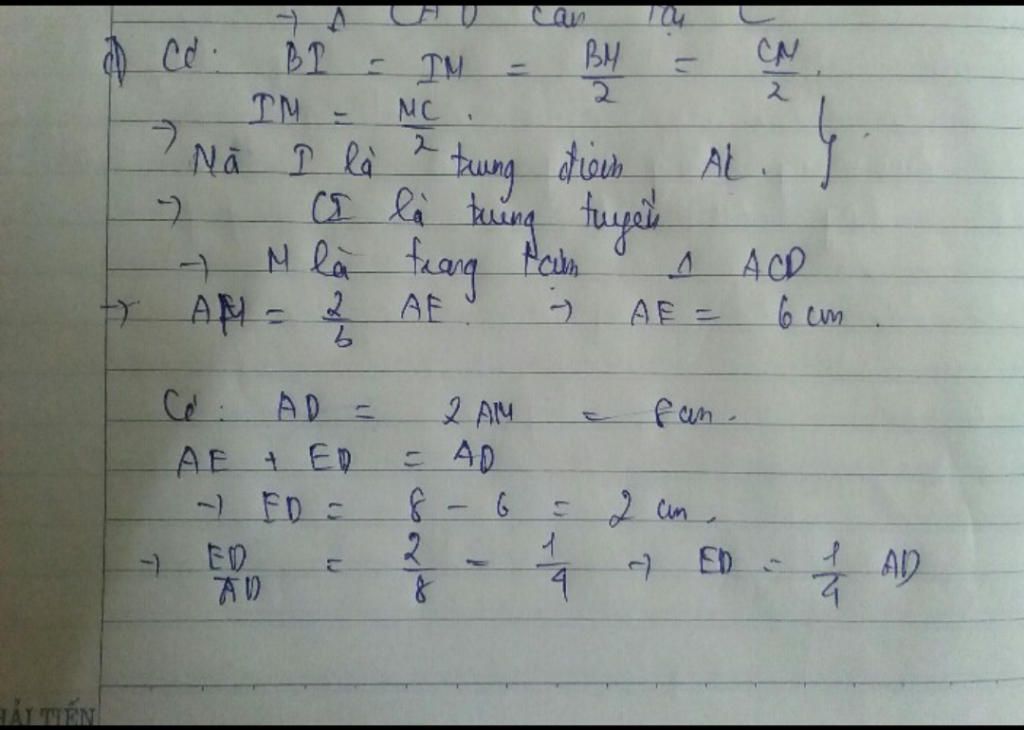 → Δ CAD cân tại C
d) Có: BI = IM = BM/2 = CM/2.
→ IM = MC/2.
Mà I là trung điểm AC.
→ CI là trung tuyến
→ M là trọng tâm Δ ACD
→ AM = 2/3 AE. → AE = 6 cm.
Có: AD = 2AM = 8 cm.
AE + ED = AD
→ ED = 8 - 6 = 2 cm.
→ ED/AD = 2/8 = 1/4 → ED = 1/4 AD
HẢI TIẾN